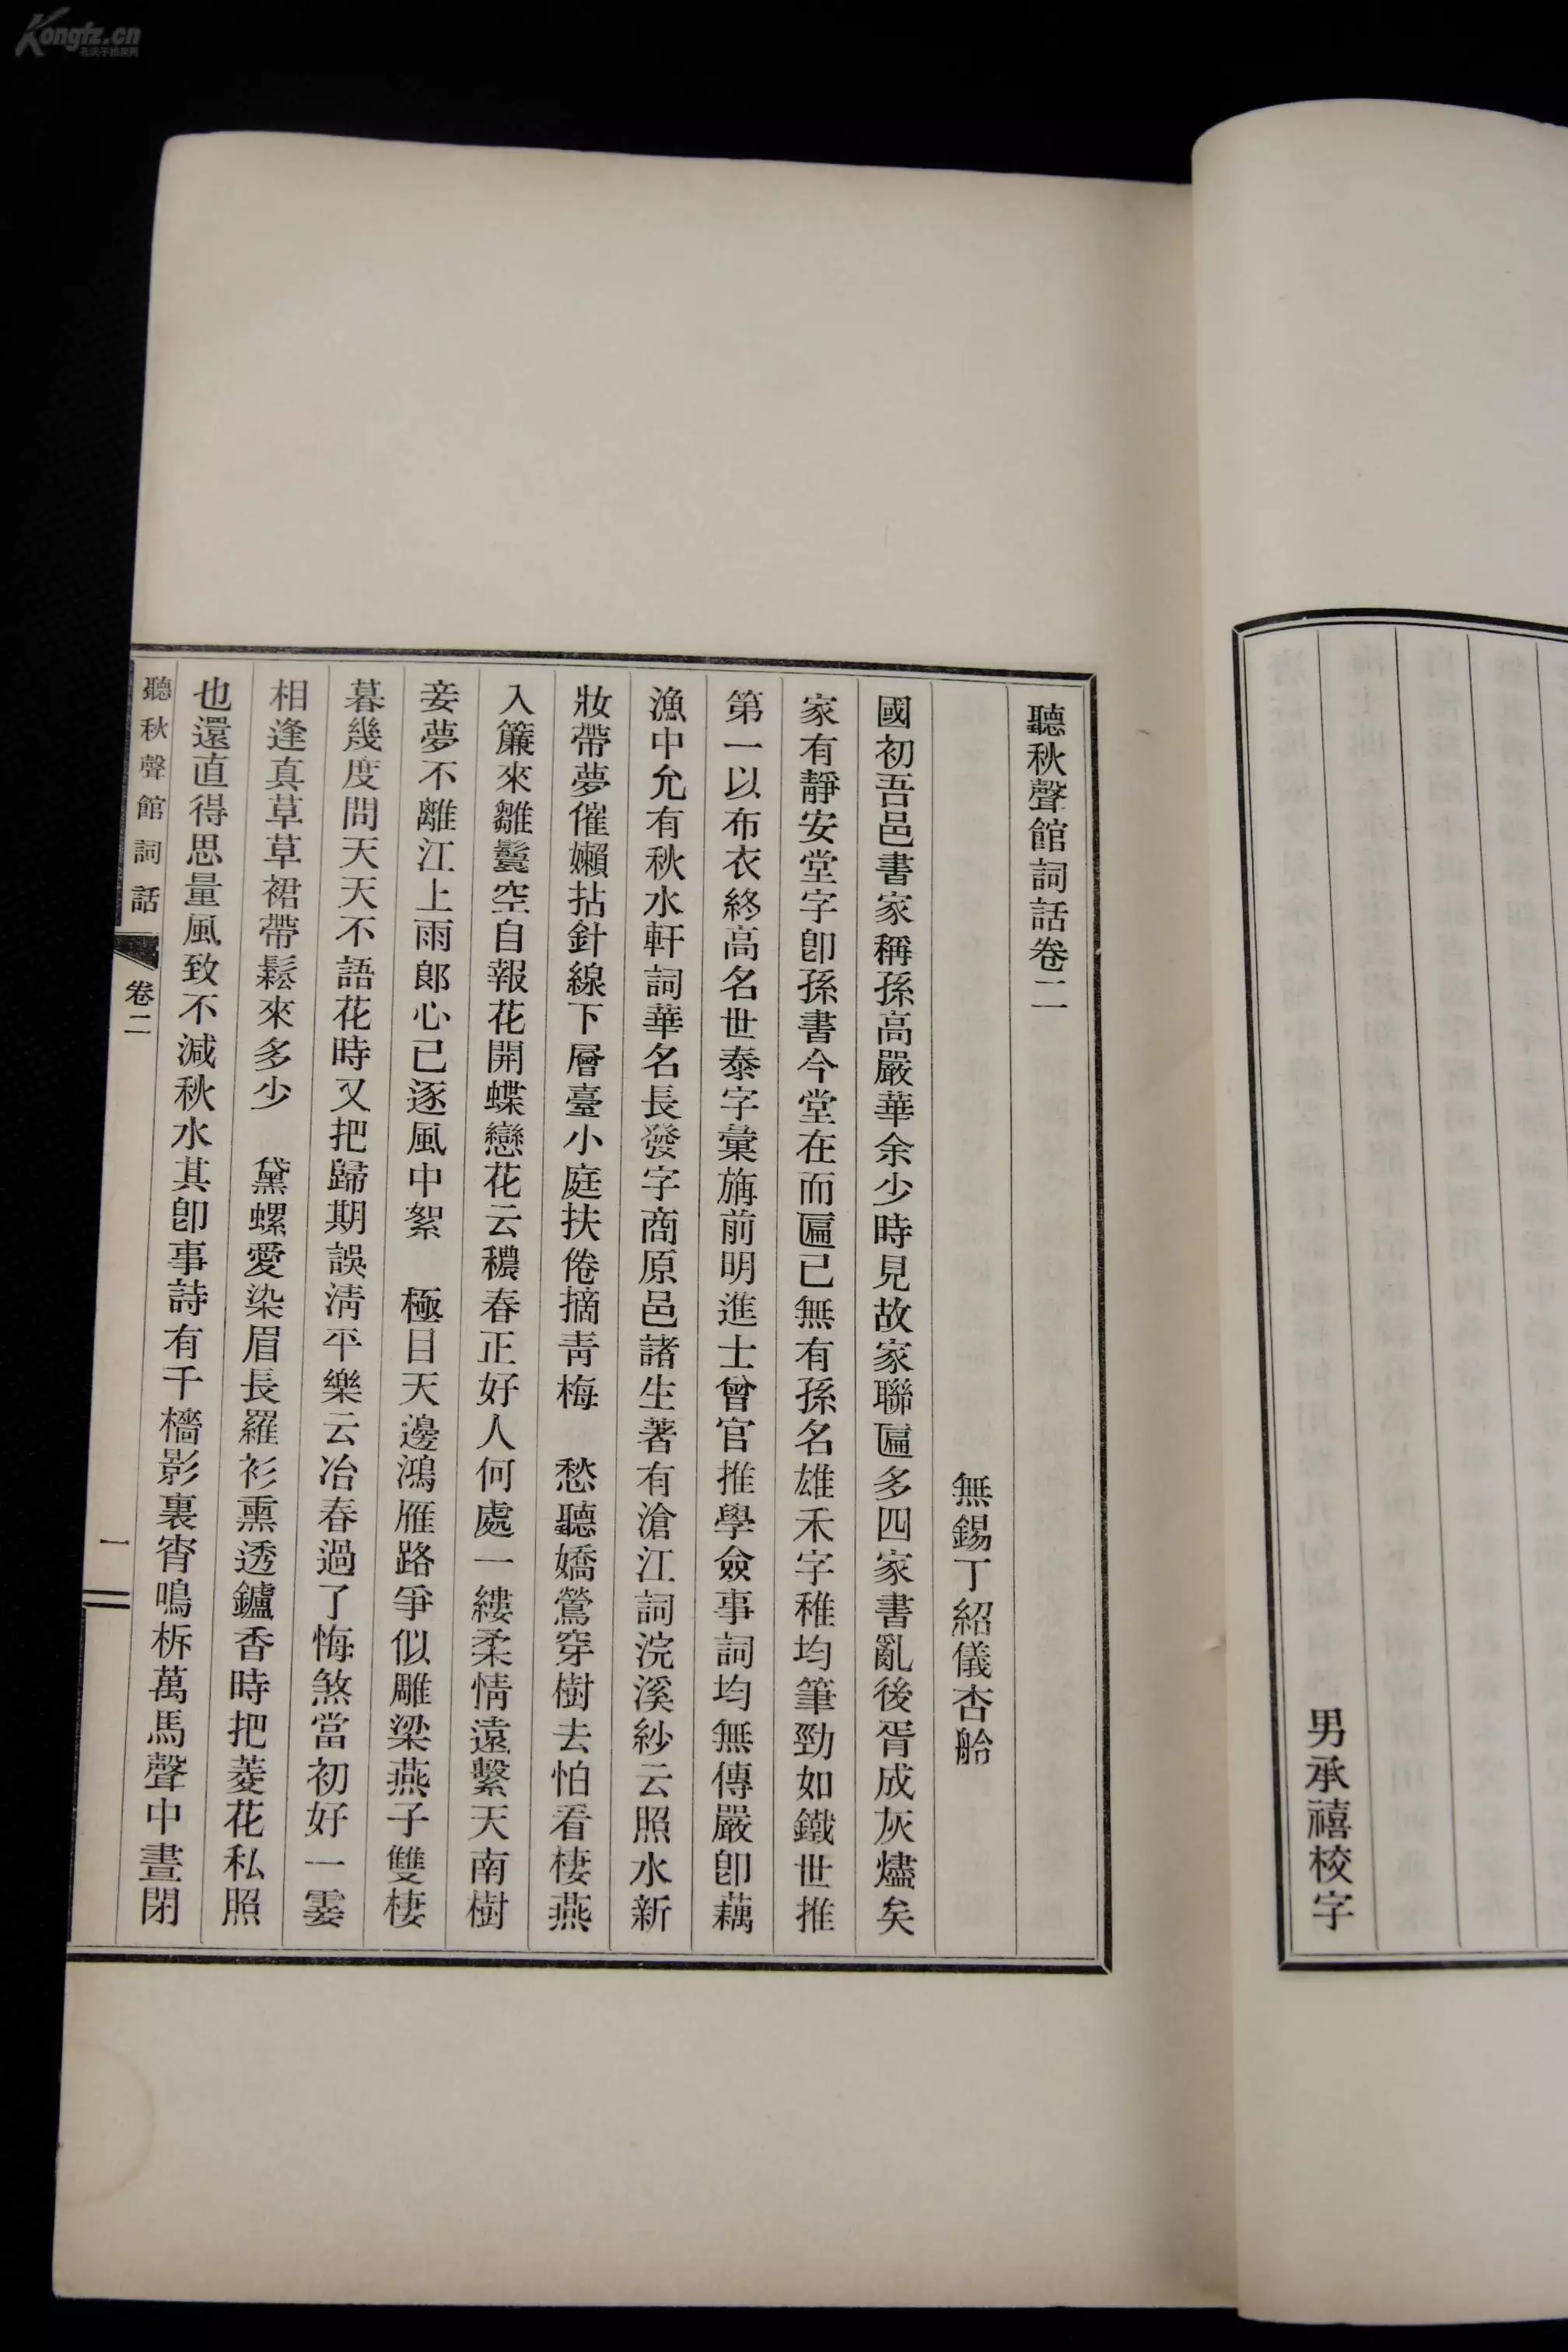 Kongfz.cn
男承禧校字
聽秋聲館詞話卷二
無錫丁紹儀杏舲
國初吾邑書家稱孫高嚴華余少時見故家聯匾多四家書亂後胥成灰燼矣
家有靜安堂字卽孫書今堂在而匾已無有孫名雄禾字稚均筆勁如鐵世推
第一以布衣終高名世泰字彙旃前明進士曾官推學僉事詞均無傳嚴卽藕
漁中允有秋水軒詞華名長發字商原邑諸生著有滄江詞浣溪紗云照水新
妝帶夢催嬾拈針線下層臺小庭扶倦摘靑梅　愁聽嬌鶯穿樹去怕看棲燕
入簾來雛鬟空自報花開蝶戀花云穠春正好人何處一縷柔情遠繫天南樹
妾夢不離江上雨郎心已逐風中絮　極目天邊鴻雁路爭似雕梁燕子雙棲
暮幾度問天天不語花時又把歸期誤淸平樂云冶春過了悔煞當初好一霎
相逢真草草裙帶鬆來多少　黛螺愛染眉長羅衫熏透鑪香時把菱花私照
也還直得思量風致不減秋水其卽事詩有千檣影裏宵鳴柝萬馬聲中晝閉
聽秋聲館詞話
卷二
一